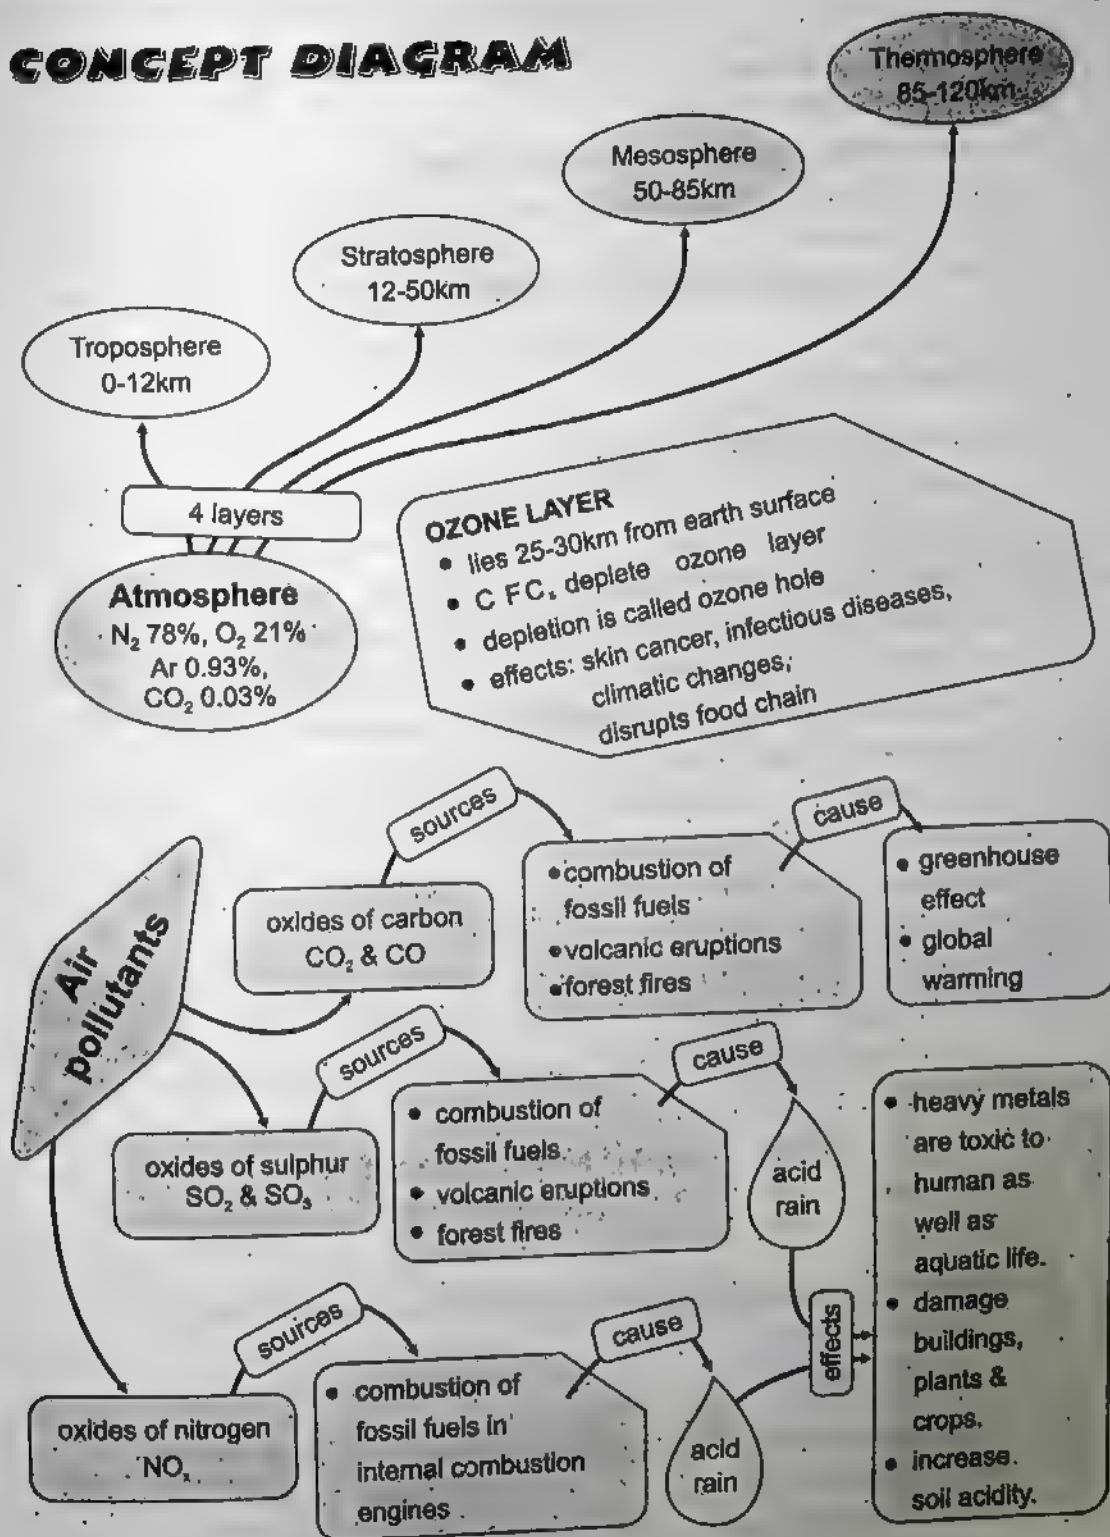 CONCEPT DIAGRAM
Thermosphere
85-120km
Mesosphere
50-85km
Stratosphere
12-50km
Troposphere
0-12km
4 layers
Atmosphere
N₂ 78%, O₂ 21%
Ar 0.93%,
CO₂ 0.03%
OZONE LAYER
• lies 25-30km from earth surface
• C FCs deplete ozone layer
• depletion is called ozone hole
• effects: skin cancer, infectious diseases,
climatic changes,
disrupts food chain
Air
pollutants
oxides of carbon
CO₂ & CO
sources
• combustion of
fossil fuels
• volcanic eruptions
• forest fires
cause
• greenhouse
effect
• global
warming
oxides of sulphur
SO₂ & SO₃
sources
• combustion of
fossil fuels
• volcanic eruptions
• forest fires
cause
acid
rain
oxides of nitrogen
NOₓ
sources
• combustion of
fossil fuels in
internal combustion
engines
cause
acid
rain
effects
• heavy metals
are toxic to
human as
well as
aquatic life.
• damage
buildings,
plants &
crops.
• increase
soil acidity.